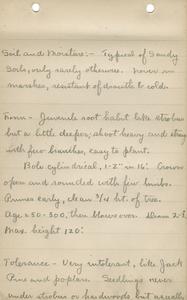 Soil and Moisture:- Typical of Sandy
Soils, only rarely otherwise. Never in
marshes, resistant of drouth & to cold.
Form - Juvenile root habit like strobus
but a little deeper, about heavy and string
with few branches, easy to plant.
Bole cylindrical, 1-2" in 16'. Crown
open and rounded with few limbs.
Prunes early, clean 3/4 ht. of tree.
Age = 250-300, then blows over. Diam 2-
Max. height 120'
Tolerance - Very intolerant, like Jack
Pine and poplars. Seedlings never
under strobus or hardwoods but